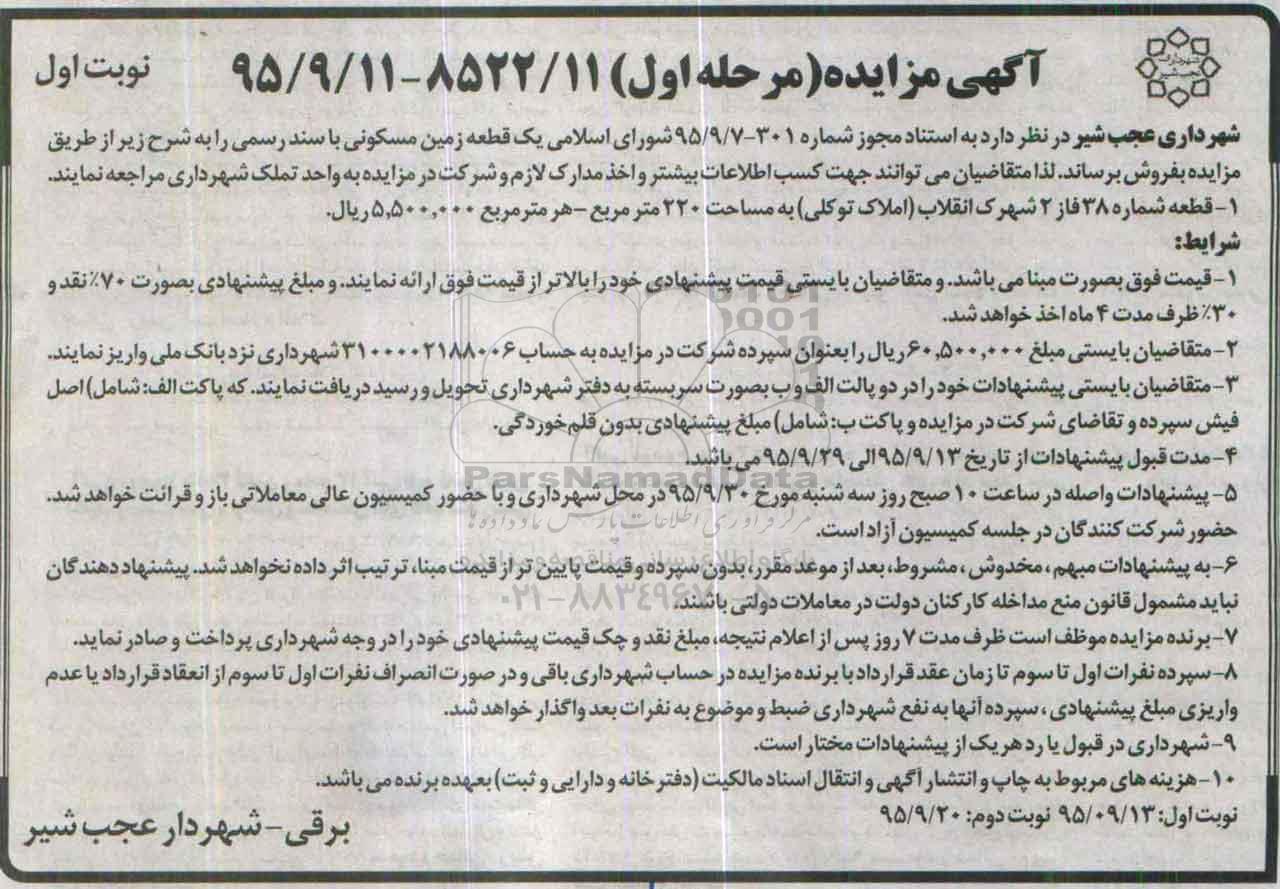 شهرداری عجب شیر
آگهی مزایده (مرحله اول) ۸۵۲۲/۱۱-۹۵/۹/۱۱
نوبت اول
شهرداری عجب شیر در نظر دارد به استناد مجوز شماره ۳۰۱-۹۵/۹/۷ شورای اسلامی یک قطعه زمین مسکونی با سند رسمی را به شرح زیر از طریق
مزایده بفروش برساند. لذا متقاضیان می توانند جهت کسب اطلاعات بیشتر و اخذ مدارک لازم و شرکت در مزایده به واحد تملک شهرداری مراجعه نمایند.
۱- قطعه شماره ۳۸ فاز ۲ شهرک انقلاب (املاک توکلی) به مساحت ۲۲۰ متر مربع -هر مترمربع ۵,۵۰۰,۰۰۰ ریال.
شرایط:
۱- قیمت فوق بصورت مبنا می باشد. و متقاضیان بایستی قیمت پیشنهادی خود را بالاتر از قیمت فوق ارائه نمایند. و مبلغ پیشنهادی بصورت ۷۰٪ نقد و
۳۰٪ ظرف مدت ۴ ماه اخذ خواهد شد.
۲- متقاضیان بایستی مبلغ ۶۰,۵۰۰,۰۰۰ ریال را بعنوان سپرده شرکت در مزایده به حساب ۳۱۰۰۰۰۲۱۸۸۰۰۶ شهرداری نزد بانک ملی واریز نمایند.
۳- متقاضیان بایستی پیشنهادات خود را در دو پالت الف و ب بصورت سربسته به دفتر شهرداری تحویل و رسید دریافت نمایند. که پاکت الف: شامل) اصل
فیش سپرده و تقاضای شرکت در مزایده و پاکت ب: شامل) مبلغ پیشنهادی بدون قلم خوردگی.
۴- مدت قبول پیشنهادات از تاریخ ۹۵/۹/۱۳ الی ۹۵/۹/۲۹ می باشد.
ParsNamadData
۵- پیشنهادات واصله در ساعت ۱۰ صبح روز سه شنبه مورخ ۹۵/۹/۳۰ در محل شهرداری و با حضور کمیسیون عالی معاملاتی باز و قرائت خواهد شد.
حضور شرکت کنندگان در جلسه کمیسیون آزاد است.
۶- به پیشنهادات مبهم، مخدوش، مشروط، بعد از موعد مقرر، بدون سپرده و قیمت پایین تر از قیمت مبنا، ترتیب اثر داده نخواهد شد. پیشنهاد دهندگان
نباید مشمول قانون منع مداخله کارکنان دولت در معاملات دولتی باشند.
۷- برنده مزایده موظف است ظرف مدت ۷ روز پس از اعلام نتیجه، مبلغ نقد و چک قیمت پیشنهادی خود را در وجه شهرداری پرداخت و صادر نماید.
۸- سپرده نفرات اول تا سوم تا زمان عقد قرارداد با برنده مزایده در حساب شهرداری باقی و در صورت انصراف نفرات اول تا سوم از انعقاد قرارداد یا عدم
واریزی مبلغ پیشنهادی، سپرده آنها به نفع شهرداری ضبط و موضوع به نفرات بعد واگذار خواهد شد.
۹- شهرداری در قبول یا رد هر یک از پیشنهادات مختار است.
۱۰- هزینه های مربوط به چاپ و انتشار آگهی و انتقال اسناد مالکیت (دفترخانه و دارایی و ثبت) بعهده برنده می باشد.
نوبت اول: ۹۵/۰۹/۱۳ نوبت دوم: ۹۵/۹/۲۰
برقی - شهردار عجب شیر